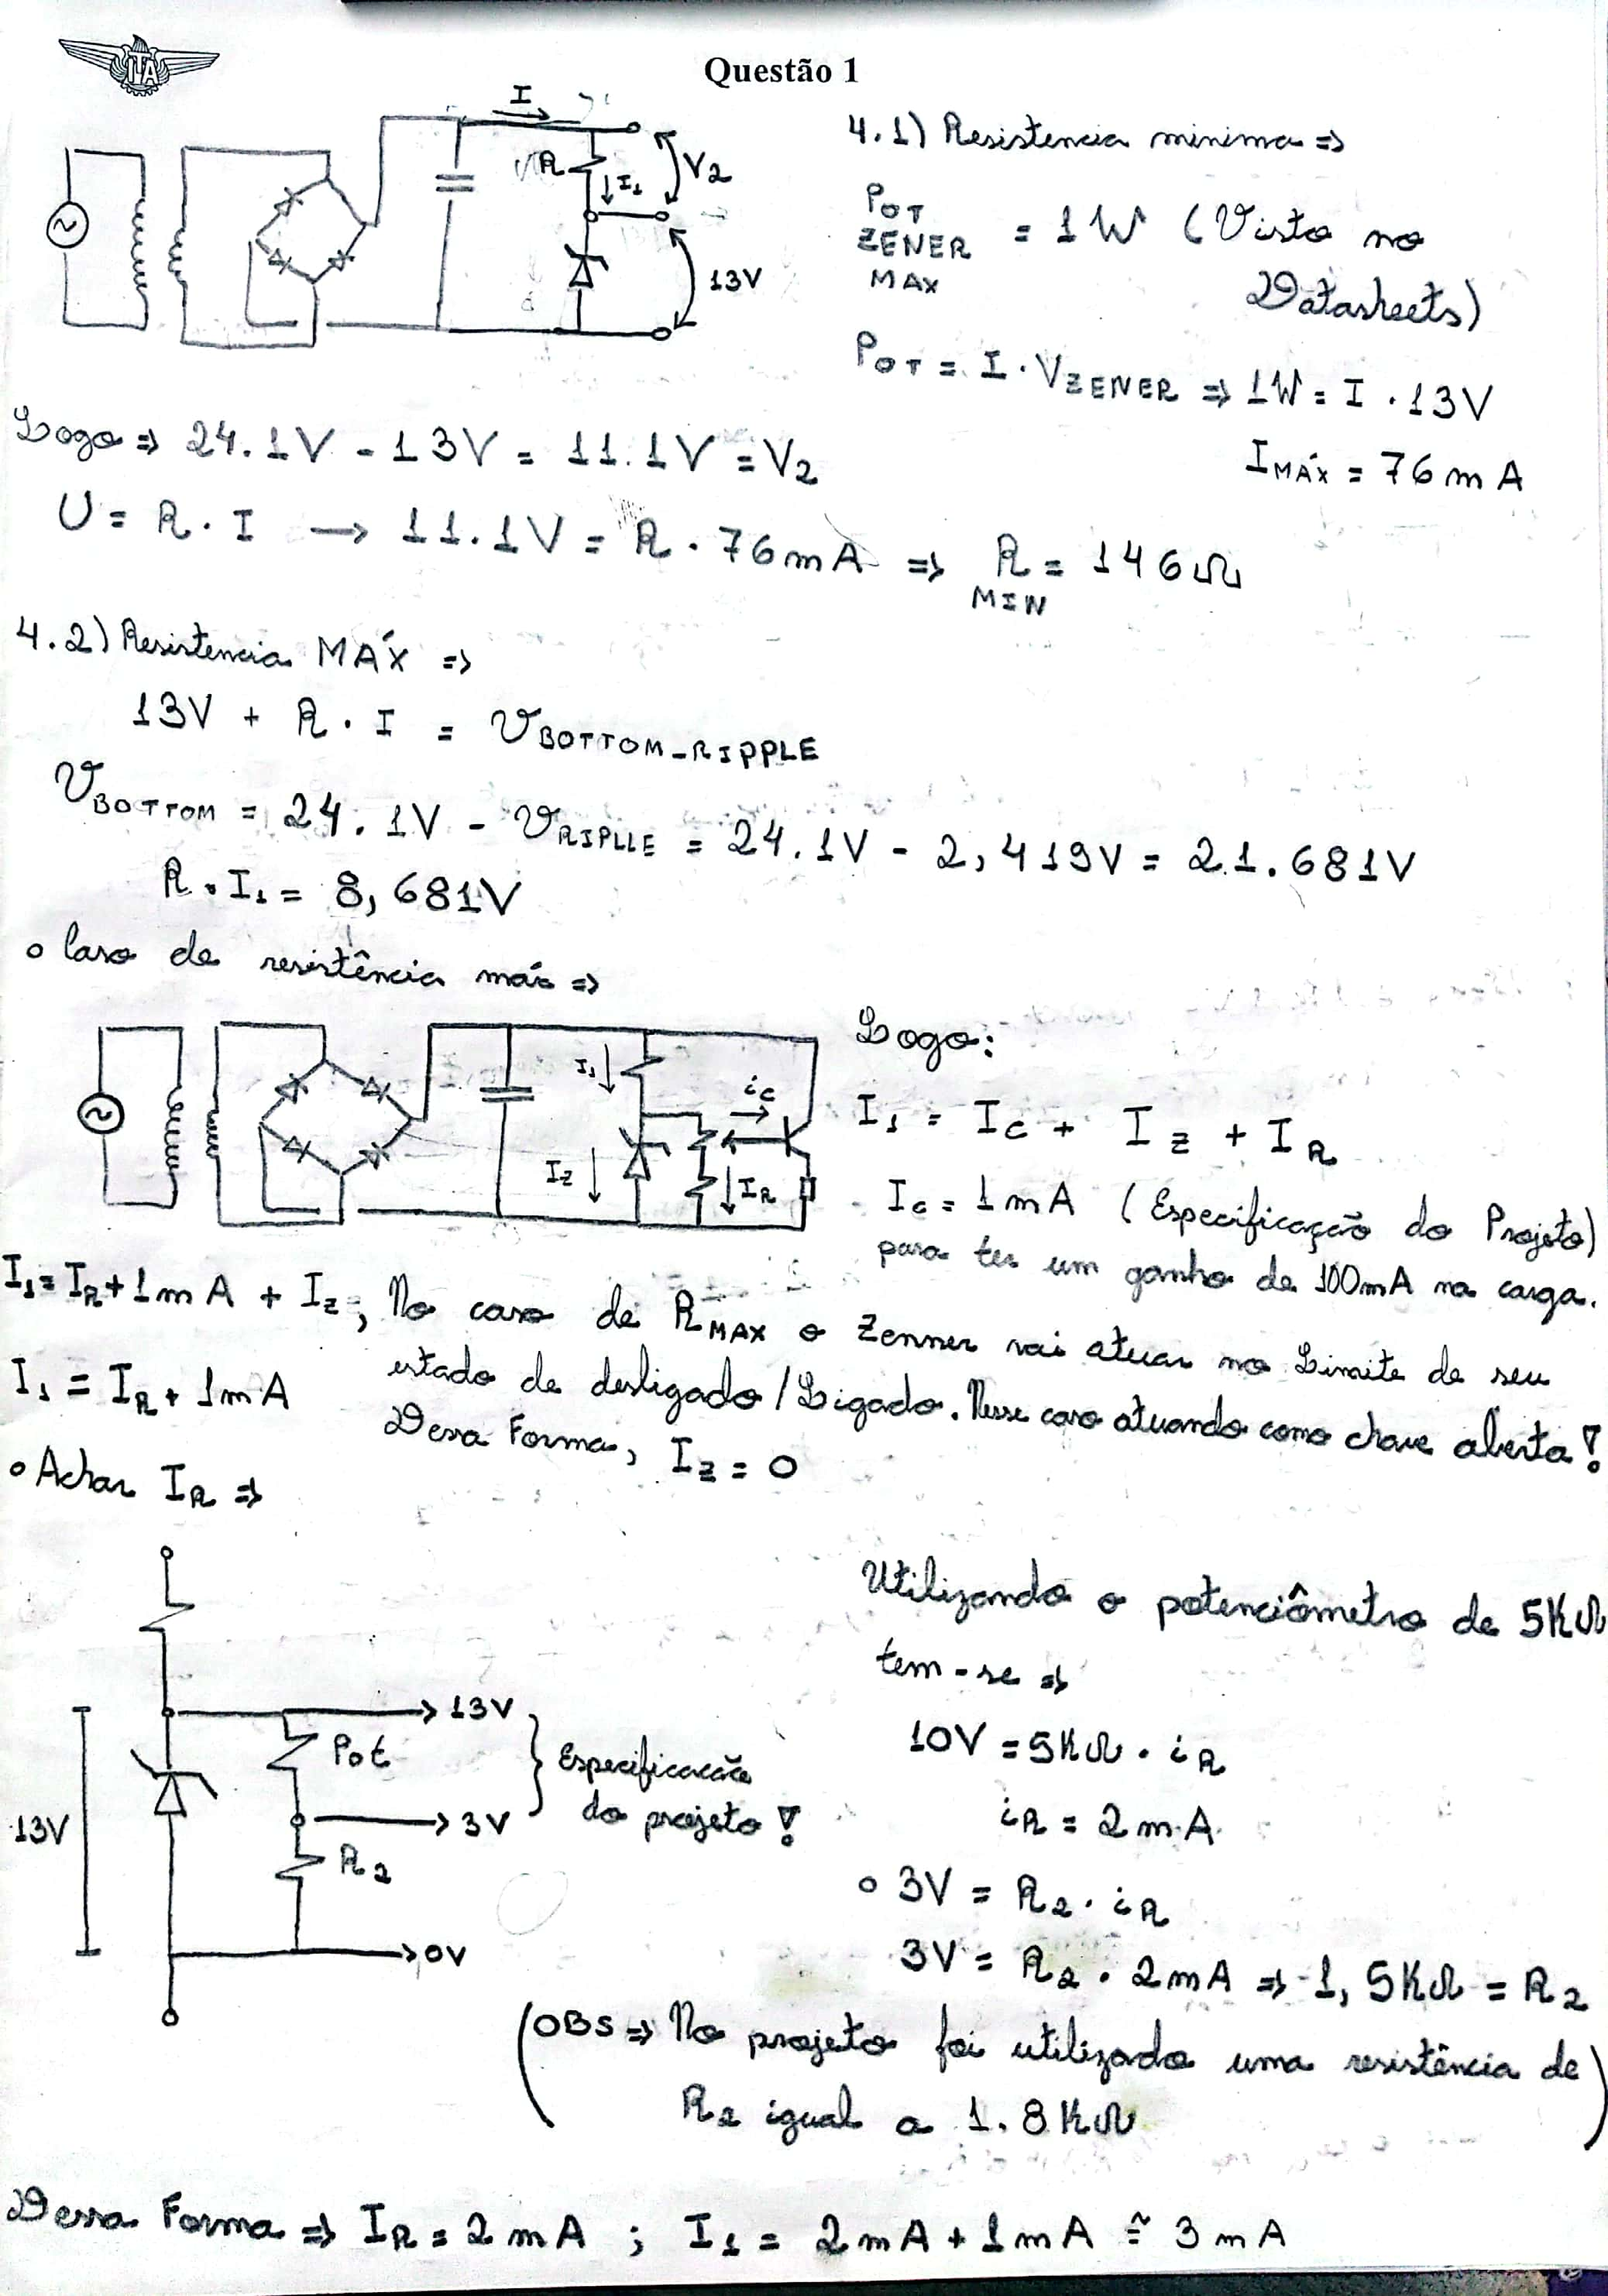 ITA
Questão 1
I
R
I1
V2
13V
4.1) Resistencia minima =>
POT ZENER MAX = 1W (Visto no
Datasheets)
POT = I . VZENER => 1W = I . 13V
IMÁX = 76 mA
Logo => 24.1V - 13V = 11.1V = V2
U = R . I → 11.1V = R . 76mA => R MIN = 146Ω
4.2) Resistencia MÁX =>
13V + R . I = VBOTTOM_RIPPLE
VBOTTOM = 24.1V - VRIPLLE = 24.1V - 2,419V = 21.681V
R . I1 = 8,681V
o Caso de resistência máx =>
I1
ic
IZ
IR
Logo:
I1 = IC + IZ + IR
Ic = 1mA (Especificação do Projeto)
para ter um ganho de 100mA na carga.
I1 = IR + 1mA + IZ ; No caso de RMAX o Zenner vai atuar no Limite de seu
I1 = IR + 1mA estado de desligado / Ligado. Nesse caso atuando como chave aberta!
Dessa Forma, IZ = 0
o Achar IR =>
13V
Pot
3V
R2
0V
13V
Especificacão
do projeto!
Utilizando o potenciômetro de 5KΩ
tem-se =>
10V = 5KΩ . iR
iR = 2mA
o 3V = R2 . iR
3V = R2 . 2mA => 1,5KΩ = R2
(OBS => No projeto foi utilizada uma resistência de
R2 igual a 1.8KΩ)
Dessa Forma => IR = 2mA ; I1 = 2mA + 1mA ≅ 3mA